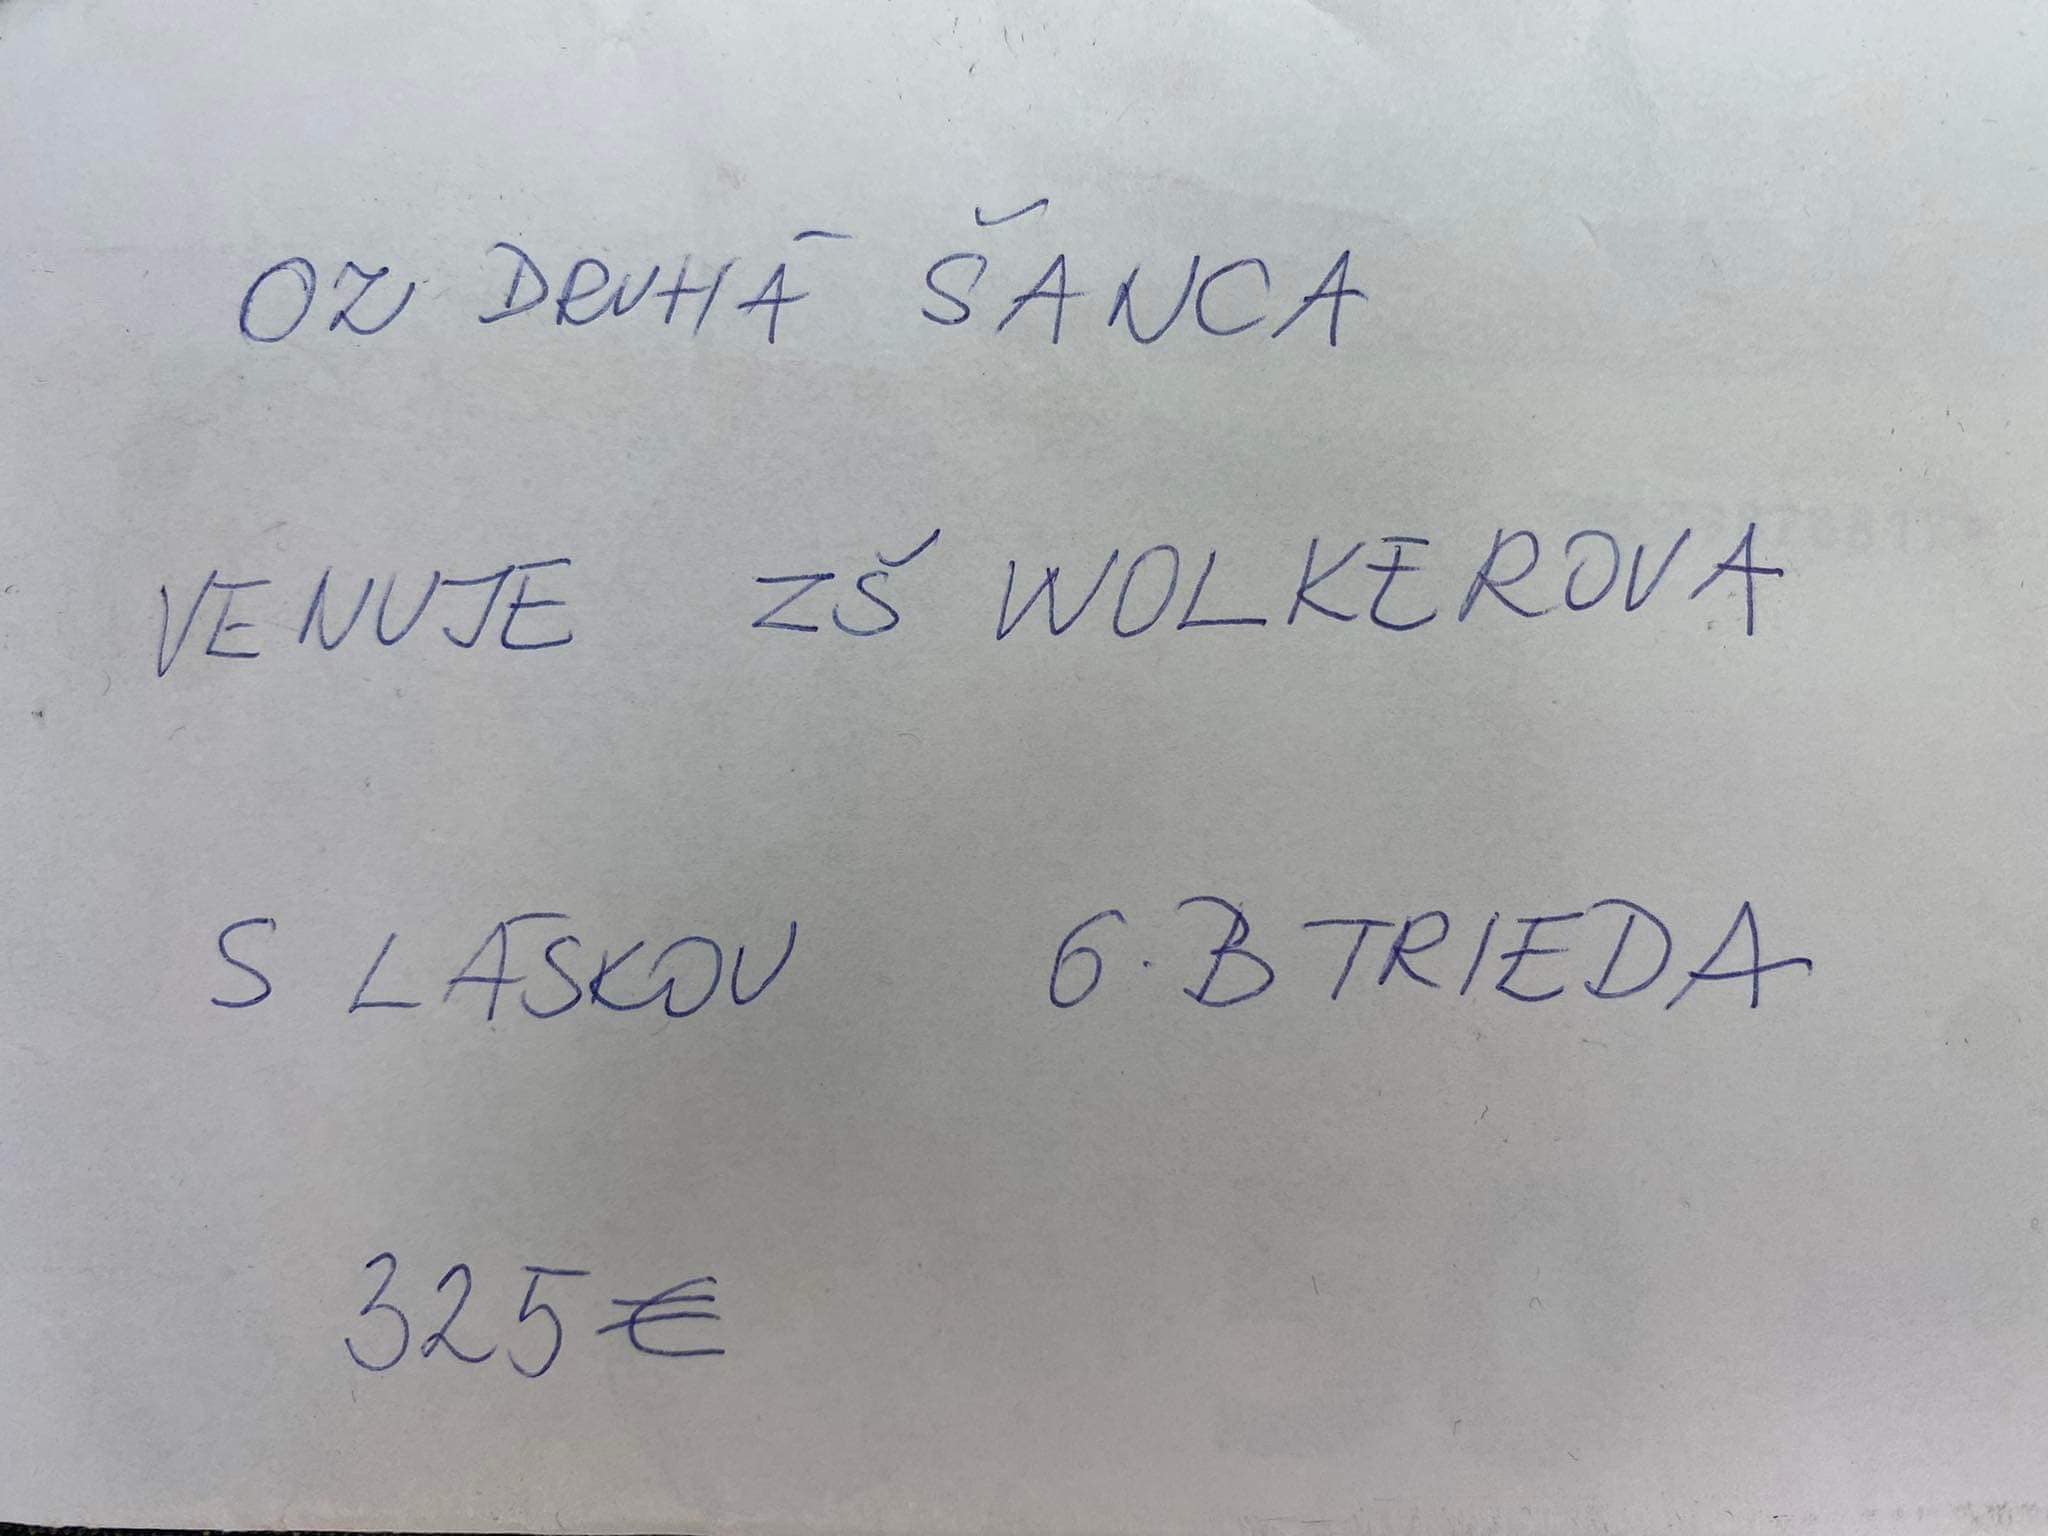 OZ DRUHÁ ŠANCA
VENUJE ZŠ WOLKEROVA
S LÁSKOU 6.B TRIEDA
325€